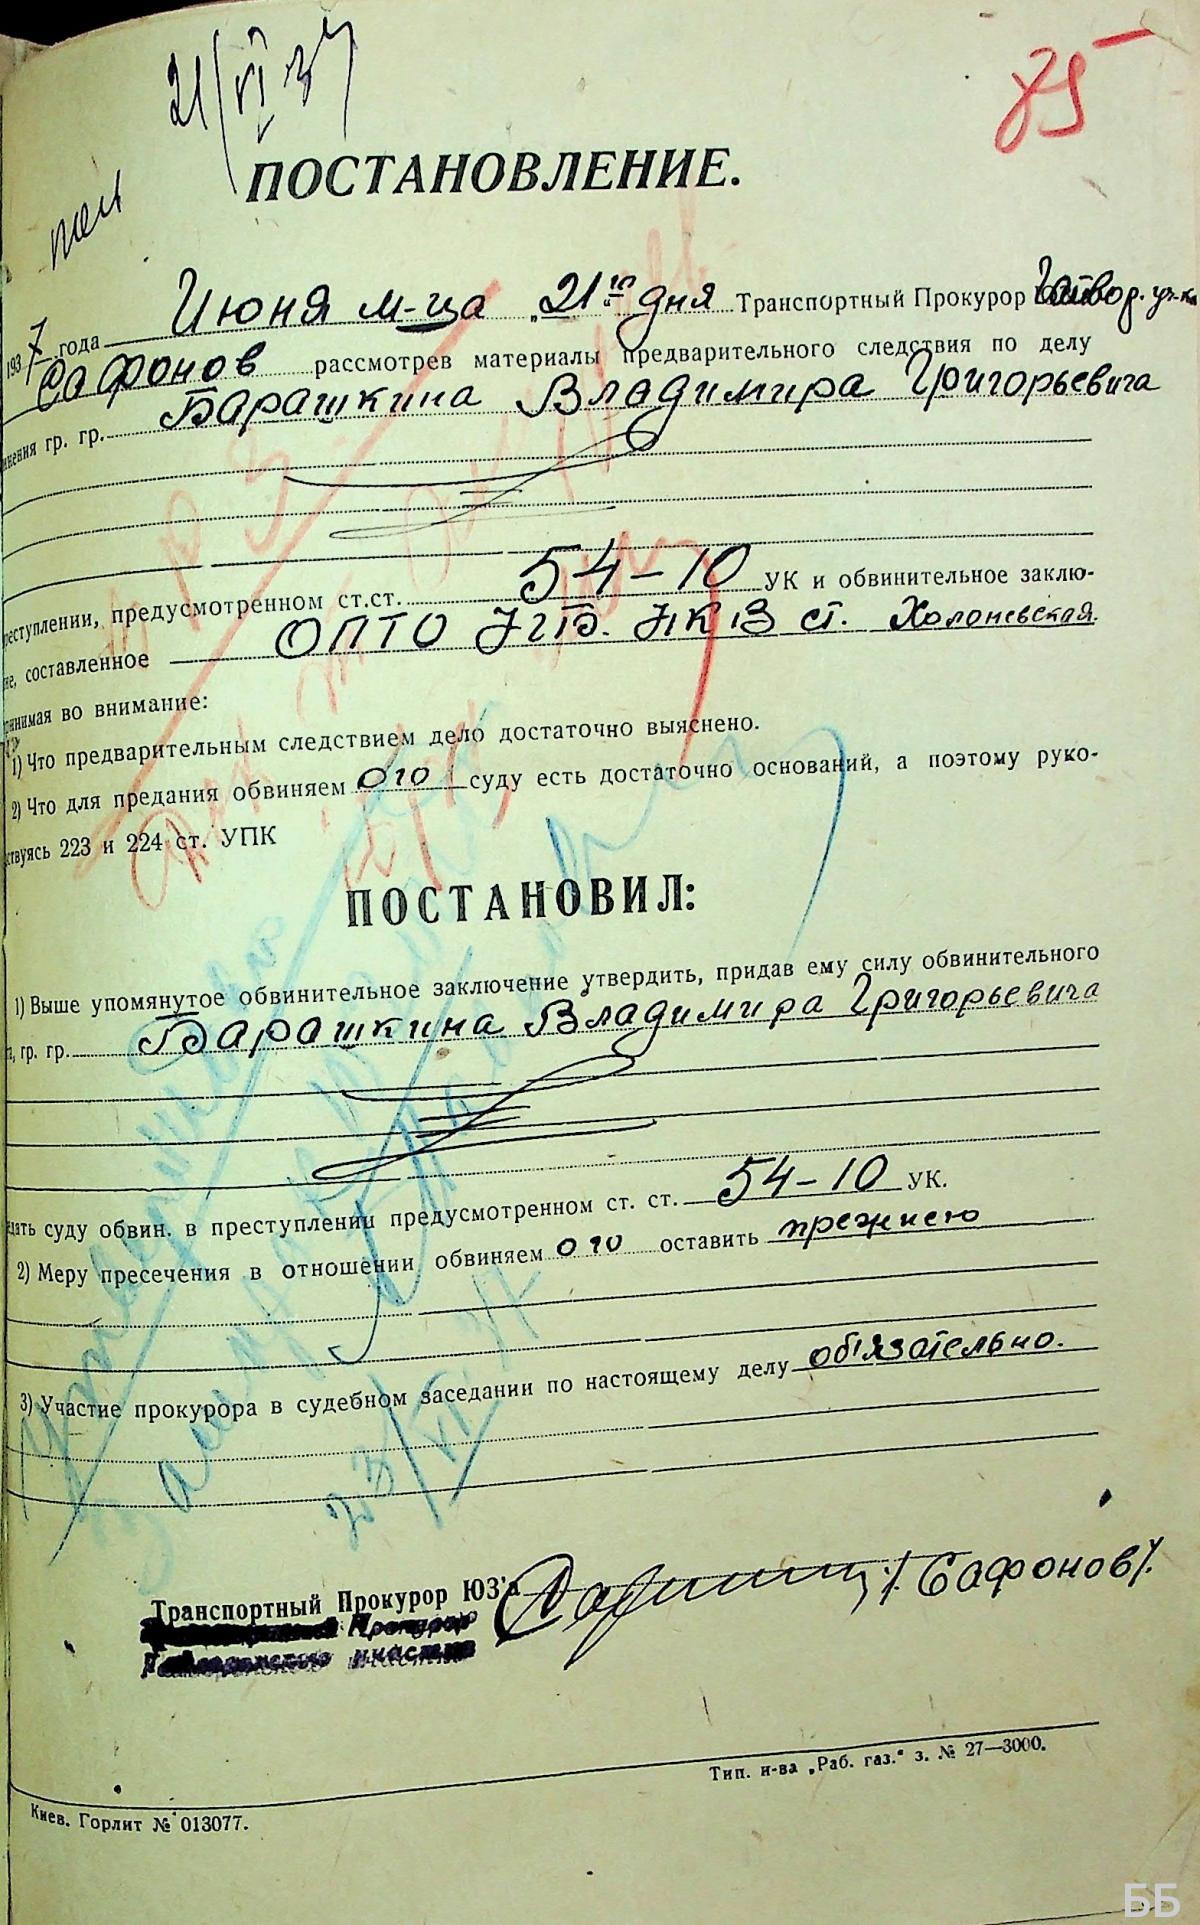 21/VI 37
75
ПОСТАНОВЛЕНИЕ.
1937 года Июня м-ца „21го дня Транспортный Прокурор Гайвор. уч-ка
Сафонов рассмотрев материалы предварительного следствия по делу
инения гр. гр. Барашкина Владимира Григорьевича
реступлении, предусмотренном ст.ст. 54-10 УК и обвинительное заклю-
ие, составленное ОПТО УГБ. НКВД ст. Холоневская.
ринимая во внимание:
1) Что предварительным следствием дело достаточно выяснено.
2) Что для предания обвиняем ого суду есть достаточно оснований, а поэтому руко-
ствуясь 223 и 224 ст. УПК
ПОСТАНОВИЛ:
1) Выше упомянутое обвинительное заключение утвердить, придав ему силу обвинительного
та, гр. гр. Барашкина Владимира Григорьевича
едать суду обвин. в преступлении предусмотренном ст. ст. 54-10 УК.
2) Меру пресечения в отношении обвиняем ого оставить прежнею
3) Участие прокурора в судебном заседании по настоящему делу об'язательно.
23/VI 37
Транспортный Прокурор ЮЗ'а /Сафонов/.
Прокурор
участка
Тип. и-ва „Раб. газ.“ з. № 27—3000.
Киев. Горлит № 013077.
ББ